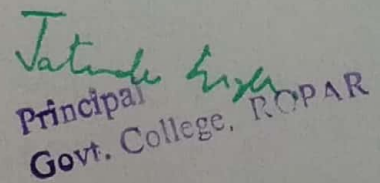 Jatinder Singh
Principal
Govt. College, ROPAR